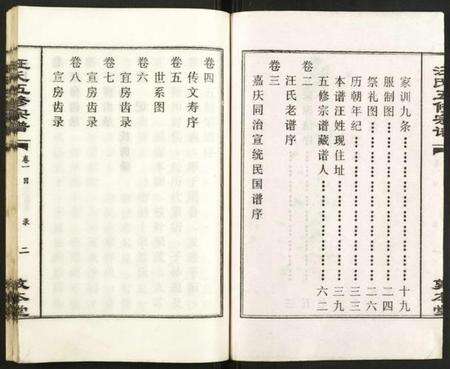 家训九条……………………十九
服制图……………………二四
祭礼图……………………二六
历朝年纪……………………三三
本谱汪姓现住址……………………三九
五修宗谱藏谱人……………………六二
卷二
汪氏老谱序
卷三
嘉庆同治宣统民国谱序
卷四
传文寿序
卷五
世系图
卷六
宜房齿录
卷七
宣房齿录
卷八
宣房齿录
汪氏五修宗谱
卷一目录
二
敦本堂